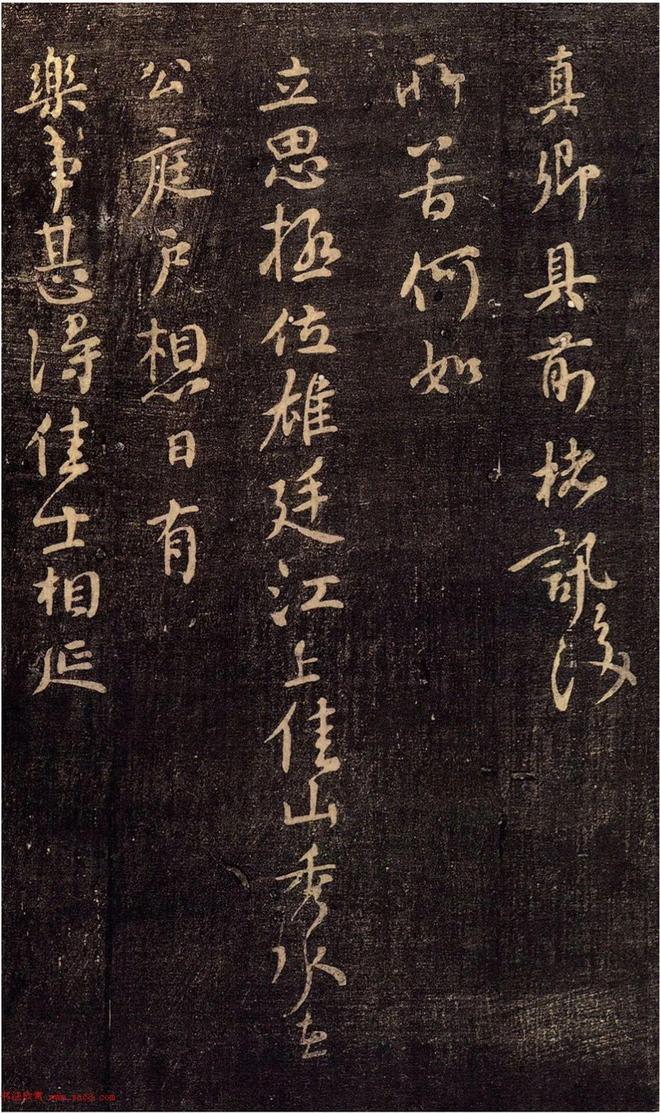 真卿具前楮訊後
所苦何如
立思極位雄廷江上佳山秀水在
公庭戶想日有
樂事甚得佳士相延
www.yac8.com